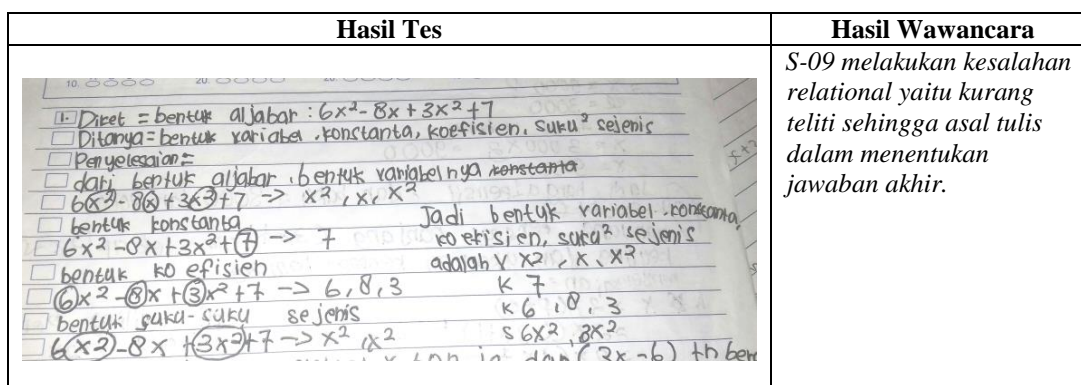 Hasil Tes
Hasil Wawancara
10. 20.
1. Diket = bentuk aljabar : 6x² - 8x + 3x² + 7
Ditanya = bentuk variabel, konstanta, koefisien, suku² sejenis
Penyelesaian =
dari bentuk aljabar, bentuk variabelnya konstanta
6x² - 8x + 3x² + 7 -> x², x, x²
bentuk konstanta
6x² - 8x + 3x² + 7 -> 7
bentuk ko efisien
6x² - 8x + 3x² + 7 -> 6, 8, 3
bentuk suku-suku sejenis
6x² - 8x + 3x² + 7 -> x², x²
Jadi bentuk variabel, konstanta,
ko efisien, suku² sejenis
adalah V x², x, x²
K 7
K 6, 8, 3
S 6x², 8x²
dan (3x - 6)
S-09 melakukan kesalahan
relational yaitu kurang
teliti sehingga asal tulis
dalam menentukan
jawaban akhir.